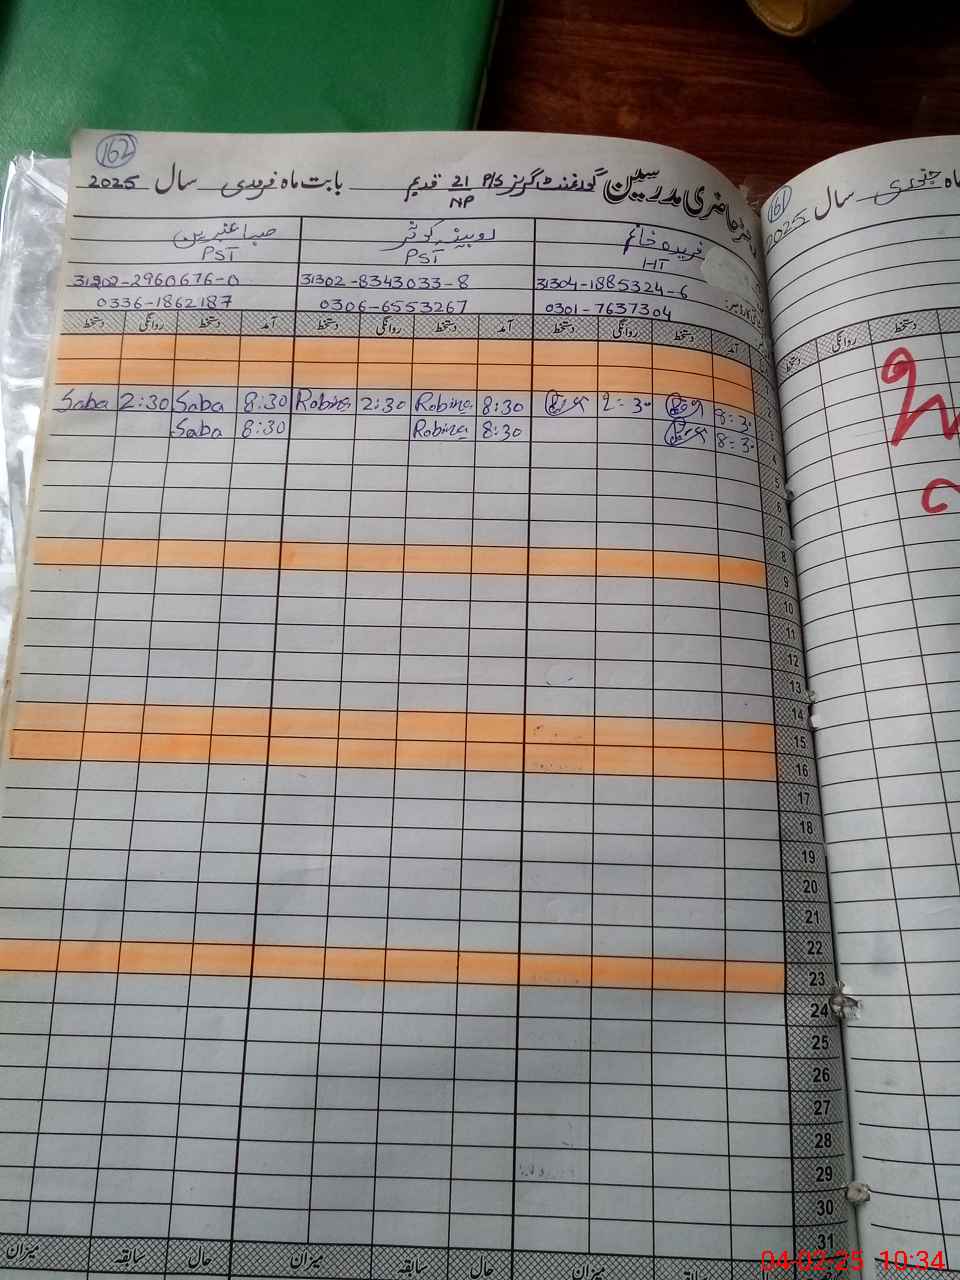 162
رجسٹر حاضری مدرسین گورنمنٹ گرلز P/S 21/NP قدیم بابت ماہ فروری سال 2025
فریدہ خانم روبینہ کوثر صبا عنبرین
HT PST PST
31304-1885324-6 31302-8343033-8 31202-2960676-0
0301-7637304 0306-6553267 0336-1862187
آمد دستخط روانگی دستخط آمد دستخط روانگی دستخط آمد دستخط روانگی دستخط
8:30 2:30 8:30 Robina 2:30 Robina 8:30 Saba 2:30 Saba
8:30 8:30 Robina 8:30 Saba
2
3
4
5
6
7
8
9
10
11
12
13
14
15
16
17
18
19
20
21
22
23
24
25
26
27
28
29
30
31
میزان حال سابقہ میزان حال سابقہ میزان
161
ماہ جنوری سال 2025
دستخط روانگی دستخط
04-02-25 10:34